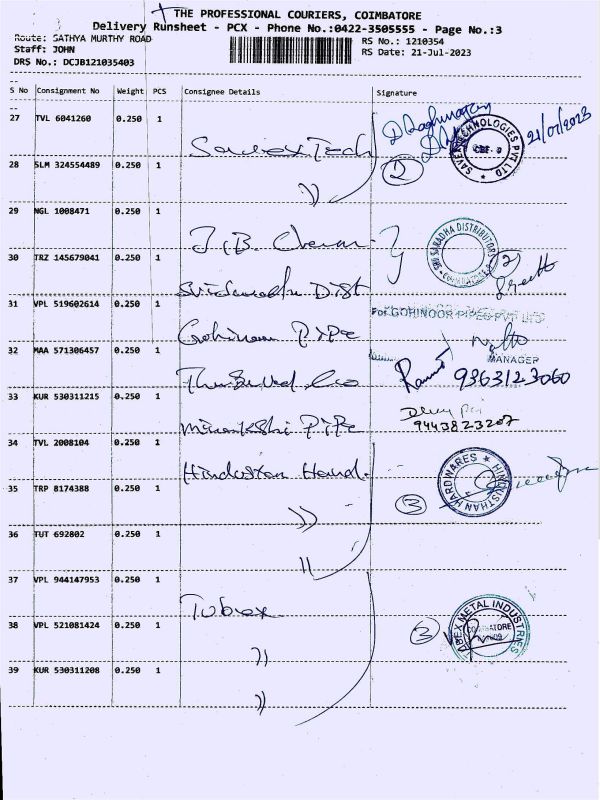 THE PROFESSIONAL COURIERS, COIMBATORE
Delivery Runsheet - PCX - Phone No.:0422-3505555 - Page No.:3
Route: SATHYA MURTHY ROAD
RS No.: 1210354
Staff: JOHN
RS Date: 21-Jul-2023
DRS No.: DCJB121035403
S No Consignment No Weight PCS Consignee Details Signature
27 TVL 6041260 0.250 1
21/07/2023
SAVEX TECHNOLOGIES PVT LTD
28 SLM 324554489 0.250 1
2
29 NGL 1008471 0.250 1
J.B.
SRI SARADHA DISTRIBUTORS
30 TRZ 145679041 0.250 1
2
Dist
31 VPL 519602614 0.250 1
For GOHINOOR PIPES PVT LTD
Gohinoor Pipe
MANAGER
32 MAA 571306457 0.250 1
9363123060
33 KUR 530311215 0.250 1
9443823207
Minakshi Pipe
34 TVL 2008104 0.250 1
Hindustan Hard.
HINDUSTHAN HARDWARES
35 TRP 8174388 0.250 1
3
36 TUT 692802 0.250 1
37 VPL 944147953 0.250 1
Tubex
METAL INDUSTRIES
COIMBATORE
38 VPL 521081424 0.250 1
3
39 KUR 530311208 0.250 1